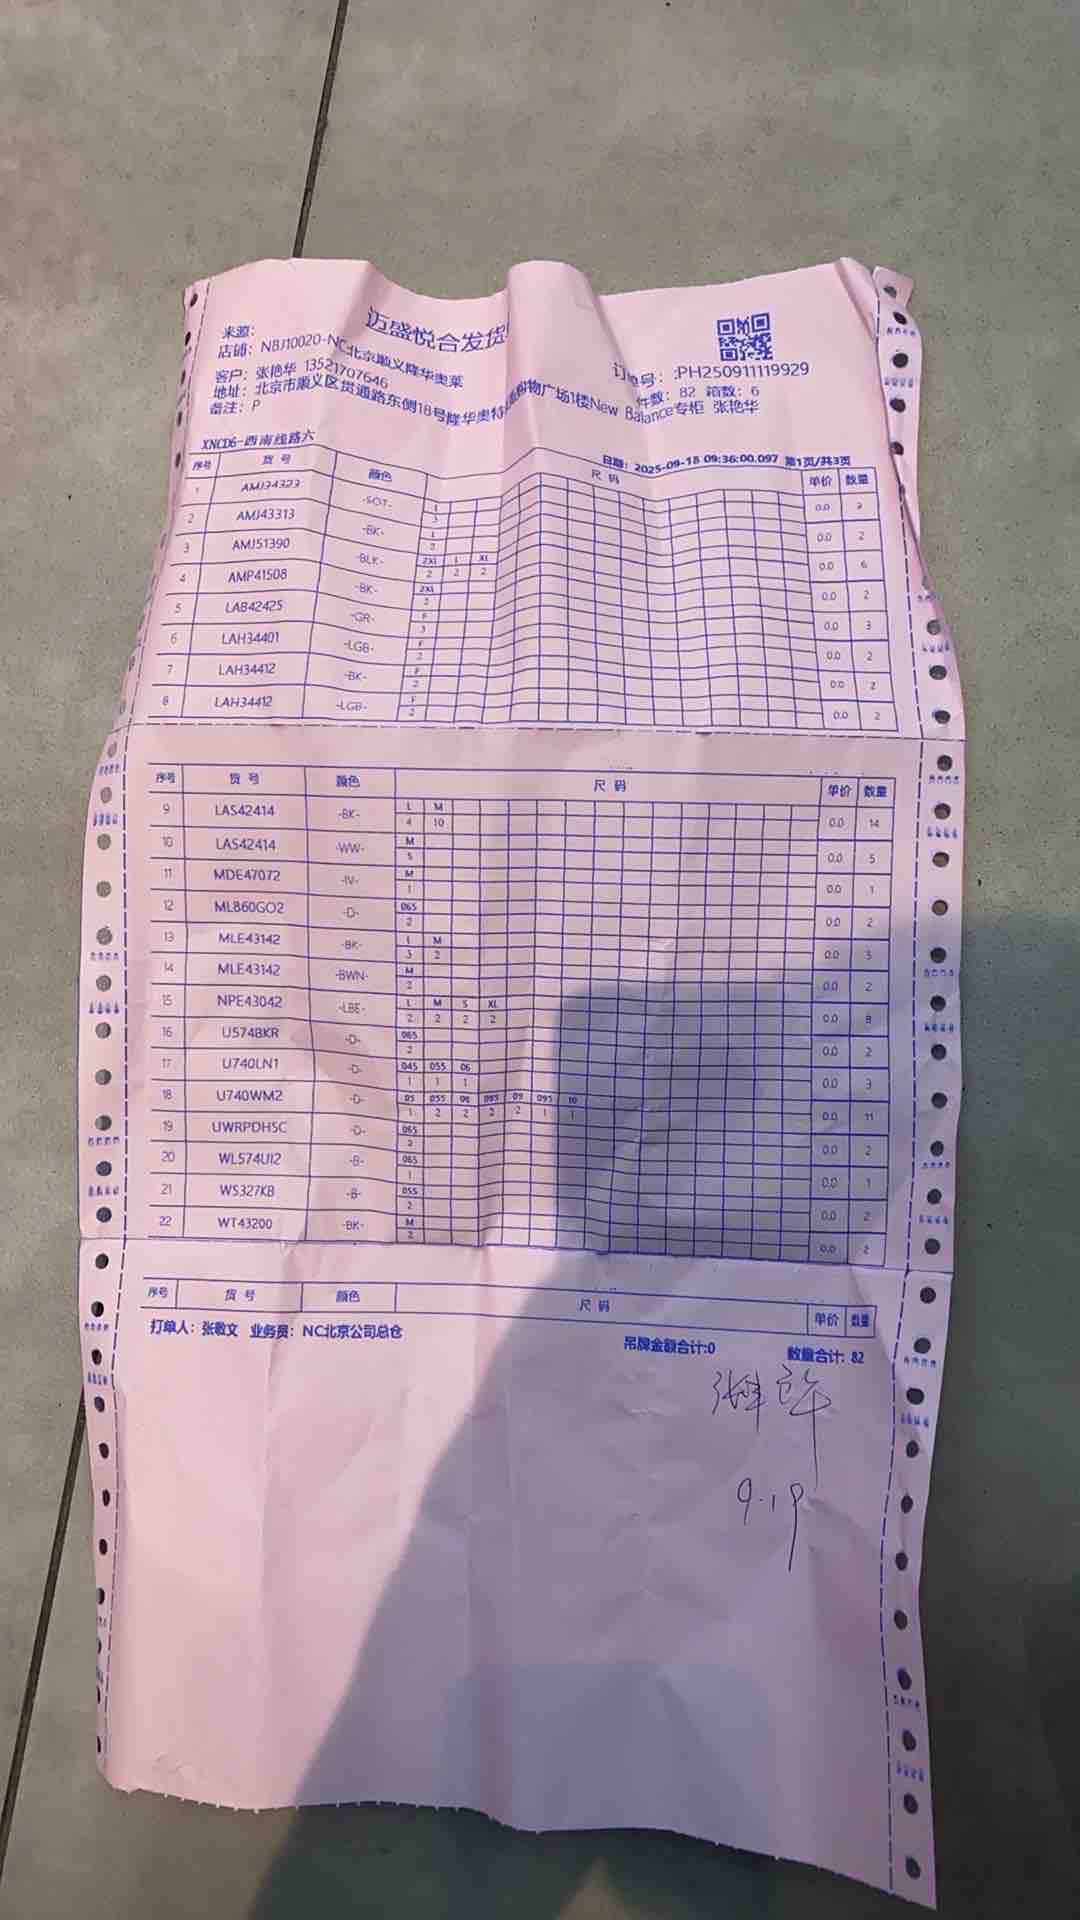 迈盛悦合发货
来源:
店铺: NBJ10020-NC北京顺义隆华奥莱
客户: 张艳华 13521707646
地址: 北京市顺义区贯通路东侧18号隆华奥特 购物广场1楼New Balance专柜 张艳华
备注: P
订 号: :PH250911119929
件数: 82 箱数: 6
XNCD6-西南线路六
日期: 2025-09-18 09:36:00.097 第1页/共3页
序号 货 号 颜色 尺 码 单价 数量
1 AMJ34323 -SOT- L 0.0 3
3
2 AMJ43313 -BK- L 0.0 2
2
3 AMJ51390 -BLK- 2XL L XL 0.0 6
2 2 2
4 AMP41508 -BK- 2XL 0.0 2
2
5 LAB42425 -GR- F 0.0 3
3
6 LAH34401 -LGB- F 0.0 2
2
7 LAH34412 -BK- F 0.0 2
2
8 LAH34412 -LGB- F 0.0 2
2
序号 货 号 颜色 尺 码 单价 数量
9 LAS42414 -BK- L M 0.0 14
4 10
10 LAS42414 -WW- M 0.0 5
5
11 MDE47072 -IV- M 0.0 1
1
12 ML860GO2 -D- 065 0.0 2
2
13 MLE43142 -BK- L M 0.0 5
3 2
14 MLE43142 -BWN- M 0.0 2
2
15 NPE43042 -LBE- L M S XL 0.0 8
2 2 2 2
16 U574BKR -D- 065 0.0 2
2
17 U740LN1 -D- 045 055 06 0.0 3
1 1 1
18 U740WM2 -D- 05 055 06 085 09 095 10 0.0 11
1 2 2 2 2 1 1
19 UWRPDHSC -D- 065 0.0 2
2
20 WL574UI2 -B- 065 0.0 1
1
21 WS327KB -B- 055 0.0 2
2
22 WT43200 -BK- M 0.0 2
2
序号 货 号 颜色 尺 码 单价 数量
打单人: 张敬文 业务员: NC北京公司总仓 吊牌金额合计:0 数量合计: 82
9.19